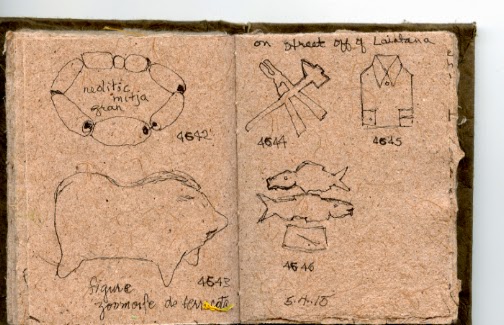 neolitic
mitja
gran
4642
figura
zoomorfe de terracota
4643
on street off of Laietana
4644
4645
4646
5.4.10